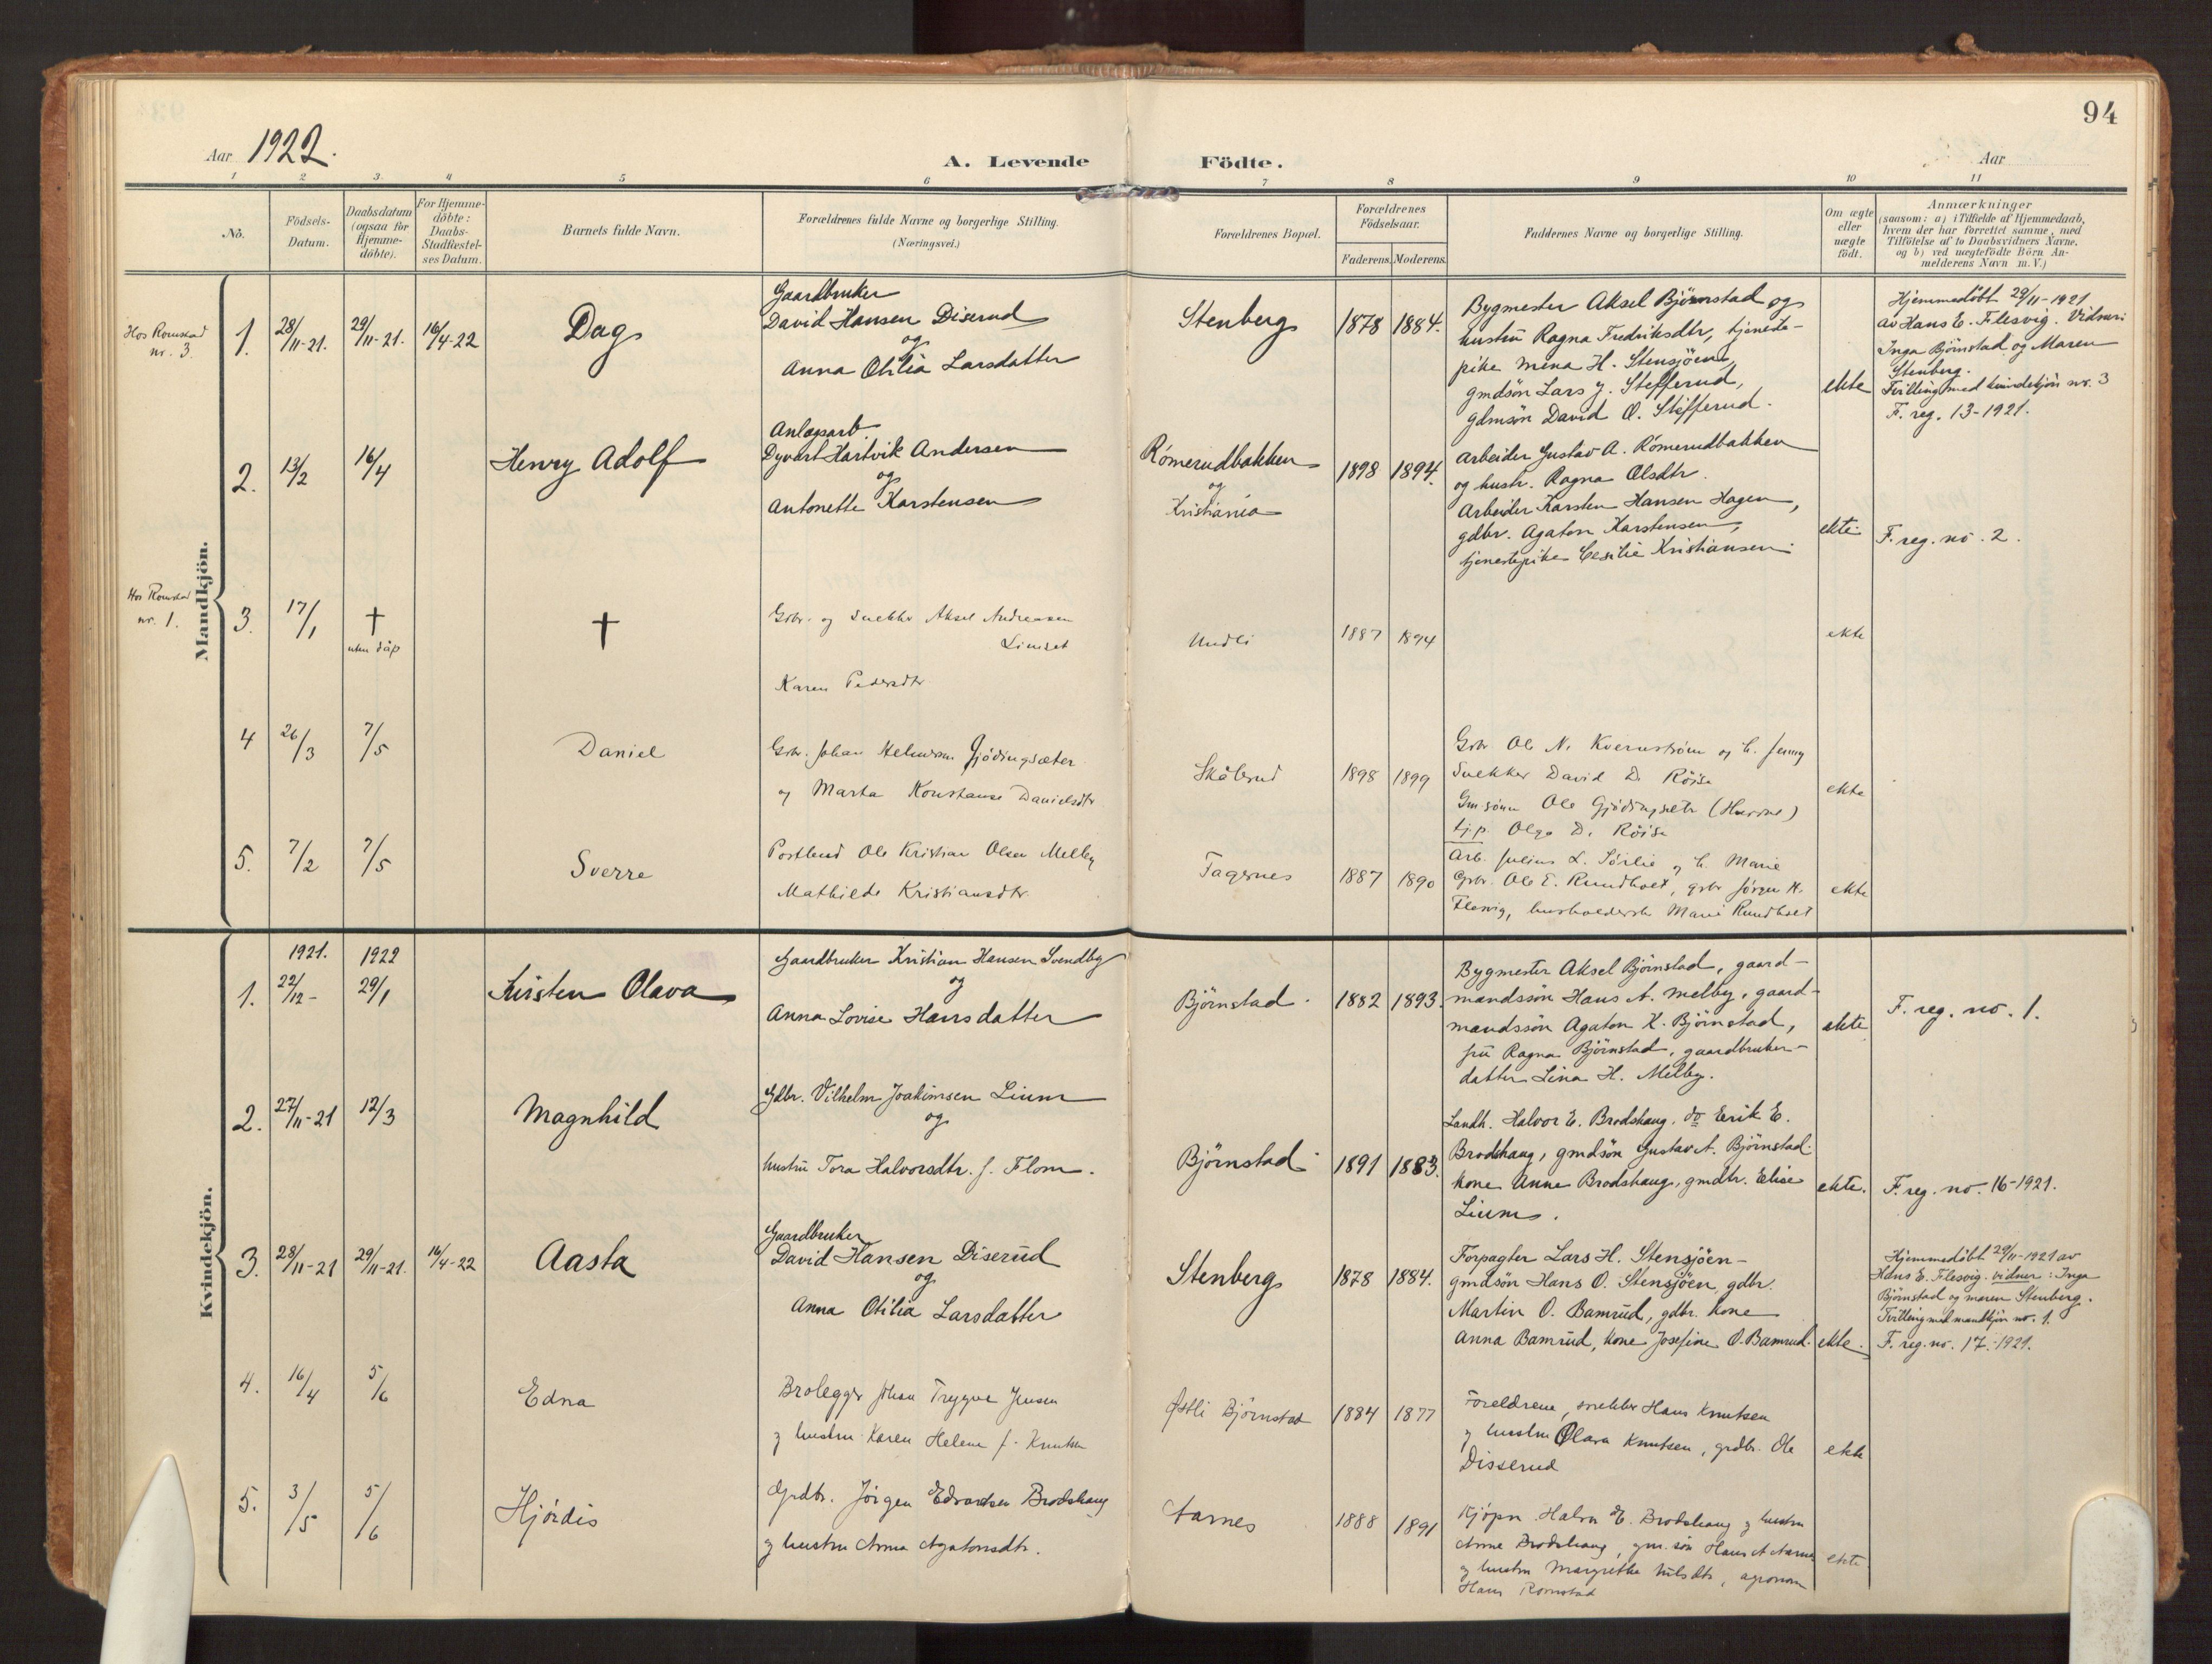 94
Aar 1922.
A. Levende Födte.
Aar
1 2 3 4 5 6 7 8 9 10 11
Nò.
Födsels-Datum.
Daabsdatum (ogsaa for Hjemme-döbte).
For Hjemme-döbte: Daabs-Stadfæstel-ses Datum.
Barnets fulde Navn.
Forældrenes fulde Navne og borgerlige Stilling.
(Næringsvei.)
Forældrenes Bopæl.
Forældrenes Födselsaar.
Faderens. Moderens.
Faddernes Navne og borgerlige Stilling.
Om ægte eller uægte födt.
Anmærkninger
(saasom: a) i Tilfælde af Hjemmedaab,
hvem der har forrettet samme, med
Tilföielse af to Daabsvidners Navne.
og b) ved uægtefödte Börn An-
melderens Navn m. V.)
Mandkjön.
Hos Romstad
nr. 3.
1. 28/11-21. 29/11-21. 16/4-22 Dag
Gaardbruker
David Hansen Diserud
og
Anna Otilia Larsdatter
Stenberg 1878 1884.
Bygmester Aksel Björnstad og
hustru Ragna Fredriksdtr, tjeneste-
pike Mina H. Stensjöen,
gmdsön Lars J. Stefferud,
gdmsön David O. Stefferud.
ekte
Hjemmedöbt 29/11-1921
av Hans E. Flesvig. Vidner:
Inga Björnstad og Maren
Stenberg.
Tvilling med kvindekjön nr. 3
F. reg. 13-1921.
2. 13/2 16/4 Henry Adolf
Anlægsarb.
Dyvart Hartvik Andersen
og
Antonette Karstensen
Römerudbakken
og
Kristiania
1898 1894.
Arbeider Gustav A. Römerudbakken
og hustr. Ragna Olsdtr.
Arbeider Karsten Hansen Hagen,
gdbr. Agaton Karstensen,
tjenestepike Cesilie Kristiansen.
ekte.
F. reg. no. 2.
Hos Romstad
nr. 1.
3. 17/1 †
uten dåp
†
Gbr. og Snekker Aksel Andreassen
Linset
Karen Pedersdtr
Undli 1887 1894 ekte
4 26/3 7/5 Daniel
Gbr. Johan Gjödingsæter
og Marta Konstanse Danielsdtr.
Skålerud 1898 1899
Gbr Ole N. Kvernström og h. Jenny
Snekker David D. Röise
Gm.sönn Ole Gjödingseter
tj.p. Olga D. Röise
ekte
5. 7/2 7/5 Sverre
Postbud Ole Kristian Olsen Melby
Mathilde Kristiansdtr
Fagernes 1887 1890
Arb. Julius L. Sörlie og h. Marie
Gbr. Ole E. Rundhoet, gbr Jörgen H.
Flesvig, husholderske Marie Rundhoet
ekte
Kvindekjön.
1921. 1922
1. 22/12- 29/1 Kirsten Olava
Gaardbruker Kristian Hansen Svendby
og
Anna Lovise Hansdatter
Björnstad. 1882 1893.
Bygmester Aksel Björnstad, gaard-
mandssön Hans A. Melby, gaard-
mandssön Agaton K. Björnstad,
fru Ragna Björnstad, gaardbruker-
datter Lina H. Melby.
ekte
F. reg. no. 1.
2. 27/11-21 12/3 Magnhild
Gdbr. Vilhelm Joakimsen Lium
og
hustru Tora Halvorsdtr. f. Flom.
Björnstad 1891 1883.
Landh. Halvor E. Brodshaug. do Erik E.
Brodshaug, gmdsön Gustav A. Björnstad
kone Anne Brodshaug, gmdtr. Elise
Lium.
ekte.
F. reg. no. 16-1921.
3. 28/11-21 29/11-21. 16/4-22 Aasta
Gaardbruker
David Hansen Diserud
og
Anna Otilia Larsdatter
Stenberg 1878 1884.
Forpagter Lars H. Stensjöen-
gmdsön Hans O. Stensjöen, gdbr.
Martin O. Bamrud, gdbr. kone
Anna Bamrud, kone Josefine O. Bamrud.
ekte.
Hjemmedöbt 29/11-1921 av
Hans E. Flesvig. vidner: Inga
Björnstad og Maren Stenberg.
Tvilling med mandkjön no. 1.
F. reg. no. 17-1921.
4. 16/4 5/6 Edna
Brolegger Johan Trygve Jensen
og hustru Karen Helene f. Knutsen
Östli Björnstad 1884 1877
Foreldrene, snekker Hans Knutsen
og hustru Olava Knutsen, grdbr. Ole
Disserud
ekte
5. 3/5 5/6 Hjördis
Grdbr. Jörgen Edvardsen Brodshaug
og hustru Anna Agatonsdtr.
Aarnes 1888 1891
Kjöpm. Halvor E. Brodshaug og hustru
Anne Brodshaug, gm. sön Hans A Aarnes
og hustru Margrethe Nilsdtr, agronom
Hans Romstad
ekte